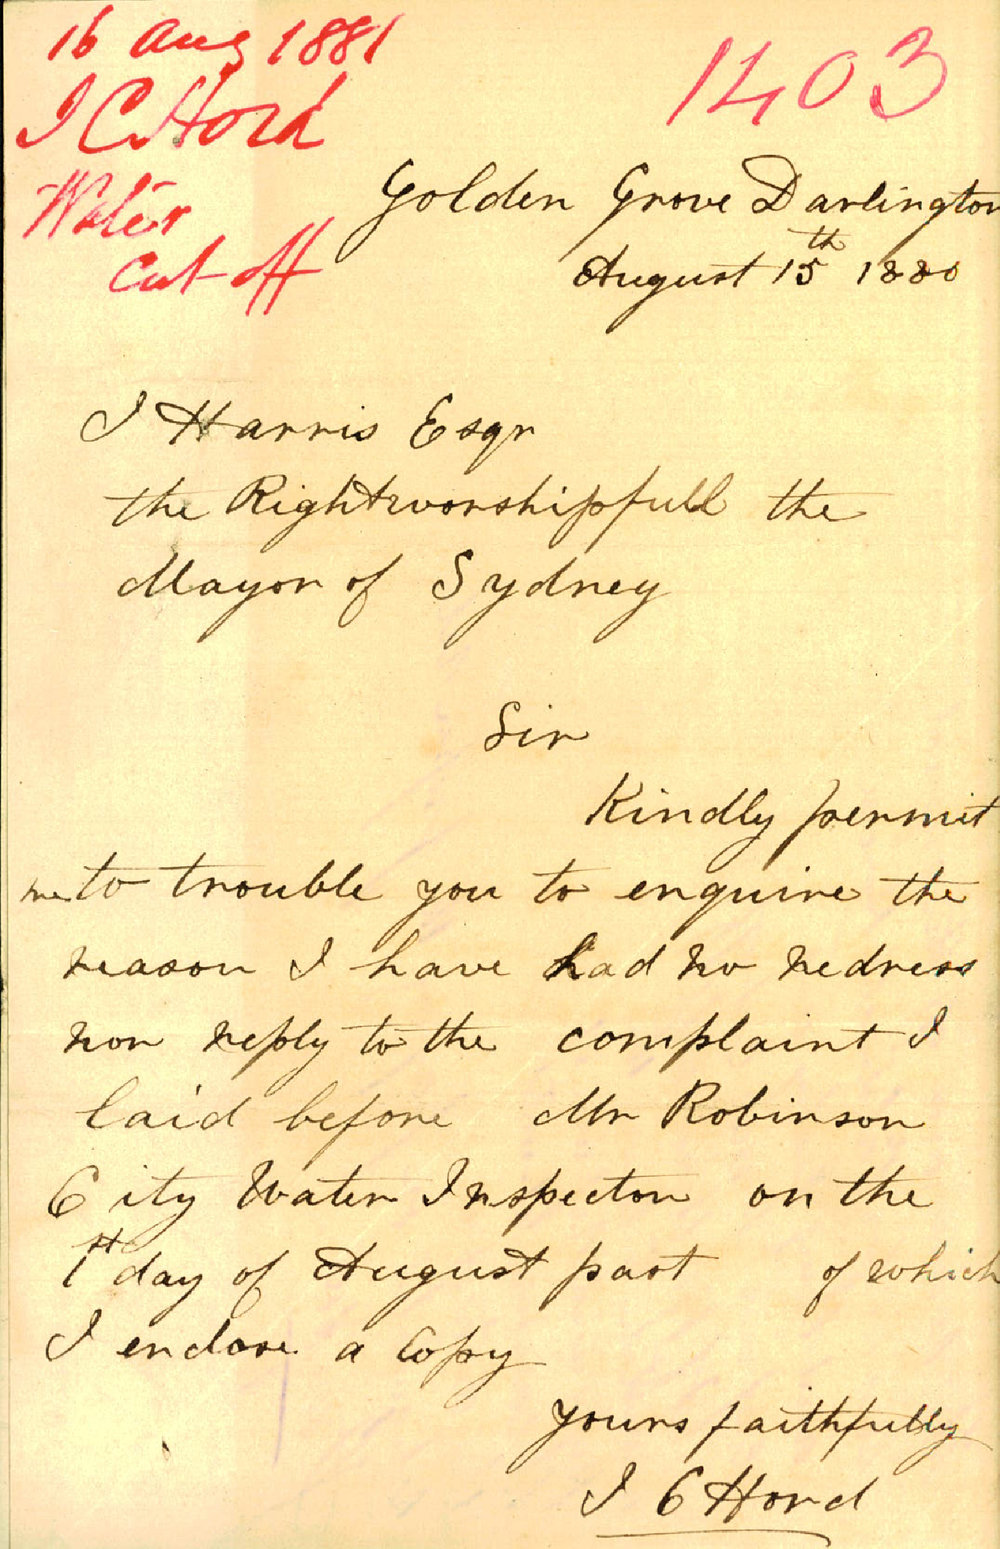 16 Aug 1881
1403
J C Hord
Water
Cut off
Golden Grove Darlington
August 15th 1880
J Harris Esqr
the Rightworshipfull the
Mayor of Sydney
Sir
Kindly permit
me to trouble you to enquire the
reason I have had no redress
nor reply to the complaint I
laid before Mr Robinson
City Water Inspector on the
1st day of August past of which
I enclose a Copy
yours faithfully
J C Hord